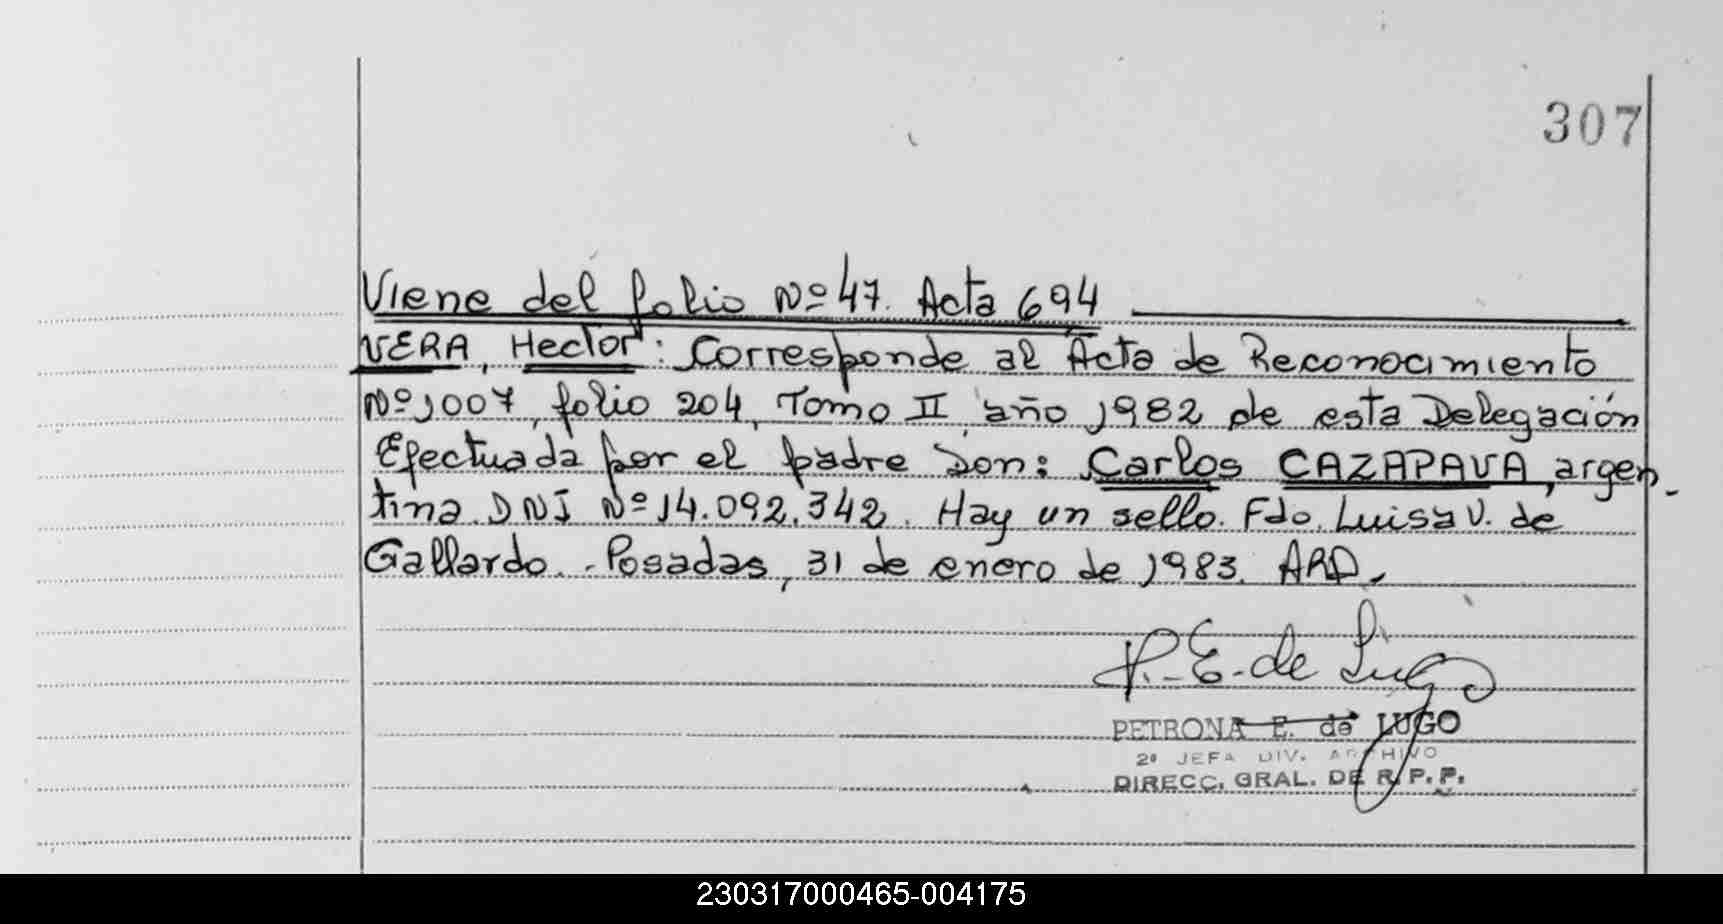 307
Viene del folio Nº 47. Acta 694
VERA, Hector: Corresponde al Acta de Reconocimiento
Nº 1007, folio 204, Tomo II año 1982 de esta Delegación
Efectuada por el padre Don: Carlos CAZAPAVA, argen-
tina. DNI Nº 14.092.342. Hay un sello. Fdo. Luisa V. de
Gallardo. - Posadas, 31 de enero de 1983. ARD.
P. E. de Lugo
PETRONA E. de LUGO
2º JEFA DIV. ARCHIVO
DIRECC. GRAL. DE R. P. P.
230317000465-004175